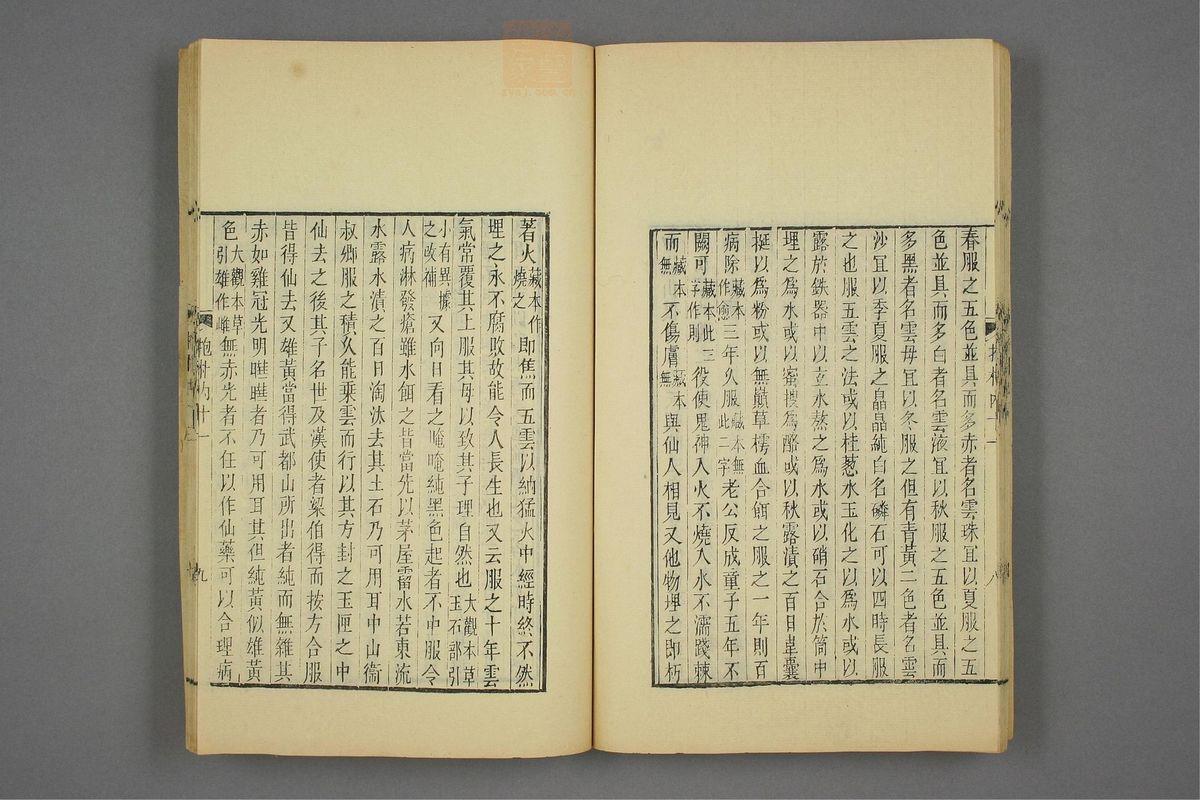 春服之五色並具而多赤者名雲珠宜以夏服之五
色並具而多白者名雲液宜以秋服之五色並具而
多黑者名雲母宜以冬服之但有青黃二色者名雲
沙宜以季夏服之晶晶純白名磷石可以四時長服
之也服五雲之法或以桂蔥水玉化之以爲水或以
露於鉄器中以立水熬之爲水或以硝石合於筒中
埋之爲水或以蜜搜爲酪或以秋露漬之百日韋囊
挻以爲粉或以無巔草樗血合餌之服之一年則百
病除藏本作愈三年久服藏本無此二字老公反成童子五年不
闕可藏本此三字作則役使鬼神入火不燒入水不濡踐棘
而藏本無不傷膚藏本無與仙人相見又他物埋之即朽
著火藏本作燒之即焦而五雲以納猛火中經時終不然
埋之永不腐敗故能令人長生也又云服之十年雲
氣常覆其上服其母以致其子理自然也大觀本草玉石部引
小有異據之改補又向日看之晻晻純黑色起者不中服令
人病淋發瘡雖水餌之皆當先以茅屋霤水若東流
水露水漬之百日淘汰去其土石乃可用耳中山衞
叔卿服之積久能乘雲而行以其方封之玉匣之中
仙去之後其子名世及漢使者梁伯得而按方合服
皆得仙去又雄黃當得武都山所出者純而無雜其
赤如雞冠光明曄曄者乃可用耳其但純黃似雄黃
色大觀本草引雄作雌無赤光者不任以作仙藥可以合理病
八
九